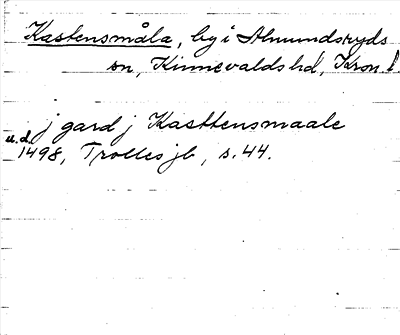 Kastensmåla, by i Almundsryds
sn, Kinnevalds hd, Kron. l.
j gard j Kasttensmaale
u. d. 1498, Trolles jb, s. 44.